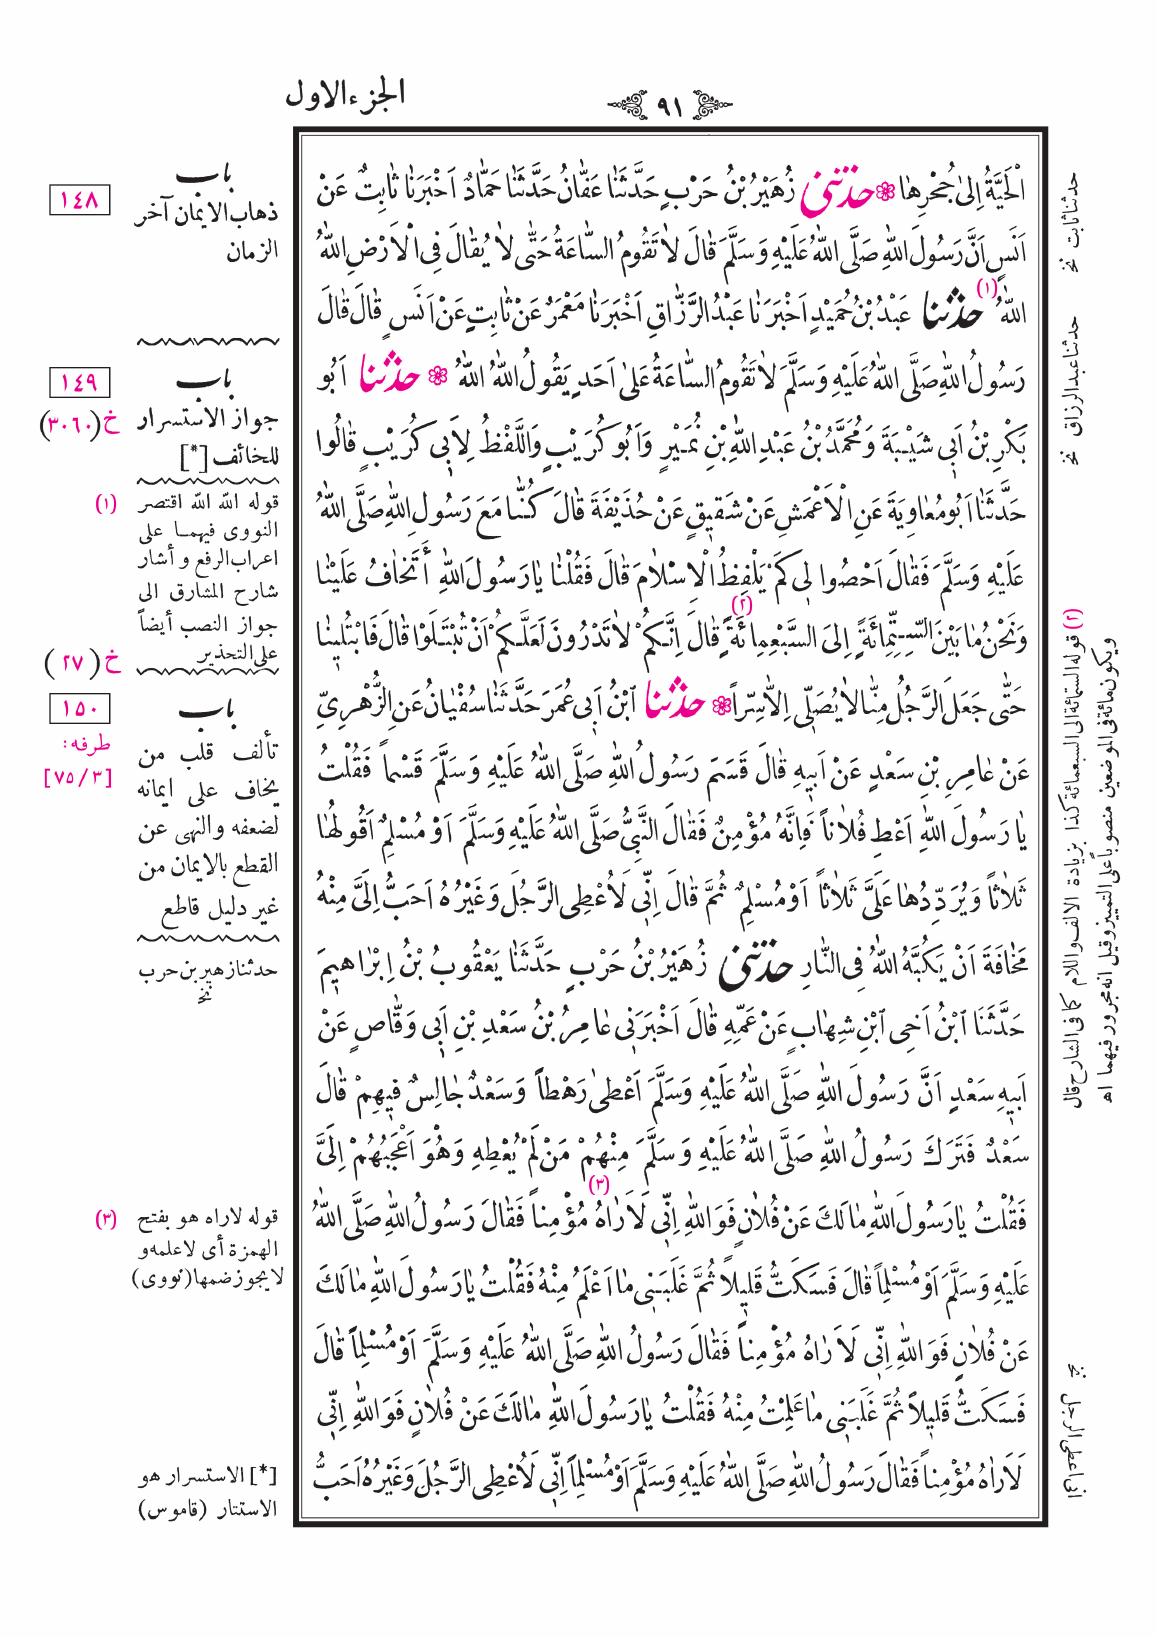 الجزء الاول
٩١
اَلْحَيَّةُ اِلىٰ جُحْرِهٰا ❁ حدثنى زُهَيْرُ بْنُ حَرْبٍ حَدَّثَنٰا عَفّٰانُ حَدَّثَنٰا حَمّٰادٌ اَخْبَرَنٰا ثٰابِتٌ عَنْ
اَنَسٍ اَنَّ رَسُولَ اللّٰهِ صَلَّى اللّٰهُ عَلَيْهِ وَسَلَّمَ قٰالَ لاٰ تَقُومُ السّٰاعَةُ حَتّٰى لاٰ يُقٰالَ فِى الْاَرْضِ اللّٰهُ
اللّٰهُ (١) حدثنا عَبْدُ بْنُ حُمَيْدٍ اَخْبَرَنٰا عَبْدُ الرَّزّٰاقِ اَخْبَرَنٰا مَعْمَرٌ عَنْ ثٰابِتٍ عَنْ اَنَسٍ قٰالَ قٰالَ
رَسُولُ اللّٰهِ صَلَّى اللّٰهُ عَلَيْهِ وَسَلَّمَ لاٰ تَقُومُ السّٰاعَةُ عَلىٰ اَحَدٍ يَقُولُ اللّٰهُ اللّٰهُ ❁ حدثنا اَبُو
بَكْرِ بْنُ اَبِى شَيْبَةَ وَمُحَمَّدُ بْنُ عَبْدِ اللّٰهِ بْنِ نُمَيْرٍ وَاَبُو كُرَيْبٍ وَاللَّفْظُ لِاَبِى كُرَيْبٍ قٰالُوا
حَدَّثَنٰا اَبُو مُعٰاوِيَةَ عَنِ الْاَعْمَشِ عَنْ شَقِيقٍ عَنْ حُذَيْفَةَ قٰالَ كُنّٰا مَعَ رَسُولِ اللّٰهِ صَلَّى اللّٰهُ
عَلَيْهِ وَسَلَّمَ فَقٰالَ اَحْصُوا لِى كَمْ يَلْفِظُ الْاِسْلاٰمَ قٰالَ فَقُلْنٰا يٰا رَسُولَ اللّٰهِ أَتَخٰافُ عَلَيْنٰا
وَنَحْنُ مٰا بَيْنَ السِّتِّمِائَةٍ اِلَى السَّبْعِمِائَةٍ (٢) قٰالَ اِنَّكُمْ لاٰ تَدْرُونَ لَعَلَّكُمْ اَنْ تُبْتَلَوْا قٰالَ فَابْتُلِينٰا
حَتّٰى جَعَلَ الرَّجُلُ مِنّٰا لاٰ يُصَلِّى اِلاّٰ سِرّاً ❁ حدثنا ابْنُ اَبِى عُمَرَ حَدَّثَنٰا سُفْيٰانُ عَنِ الزُّهْرِيِّ
عَنْ عٰامِرِ بْنِ سَعْدٍ عَنْ اَبِيهِ قٰالَ قَسَمَ رَسُولُ اللّٰهِ صَلَّى اللّٰهُ عَلَيْهِ وَسَلَّمَ قَسْماً فَقُلْتُ
يٰا رَسُولَ اللّٰهِ اَعْطِ فُلاٰناً فَاِنَّهُ مُؤْمِنٌ فَقٰالَ النَّبِيُّ صَلَّى اللّٰهُ عَلَيْهِ وَسَلَّمَ اَوْ مُسْلِمٌ اَقُولُهٰا
ثَلاٰثاً وَيُرَدِّدُهٰا عَلَيَّ ثَلاٰثاً اَوْ مُسْلِمٌ ثُمَّ قٰالَ اِنِّى لَاُعْطِى الرَّجُلَ وَغَيْرُهُ اَحَبُّ اِلَيَّ مِنْهُ
مَخٰافَةَ اَنْ يَكُبَّهُ اللّٰهُ فِى النّٰارِ حدثنى زُهَيْرُ بْنُ حَرْبٍ حَدَّثَنٰا يَعْقُوبُ بْنُ اِبْرٰاهِيمَ
حَدَّثَنَا ابْنُ اَخِى ابْنِ شِهٰابٍ عَنْ عَمِّهِ قٰالَ اَخْبَرَنِى عٰامِرُ بْنُ سَعْدِ بْنِ اَبِى وَقّٰاصٍ عَنْ
اَبِيهِ سَعْدٍ اَنَّ رَسُولَ اللّٰهِ صَلَّى اللّٰهُ عَلَيْهِ وَسَلَّمَ اَعْطىٰ رَهْطاً وَسَعْدٌ جٰالِسٌ فِيهِمْ قٰالَ
سَعْدٌ فَتَرَكَ رَسُولُ اللّٰهِ صَلَّى اللّٰهُ عَلَيْهِ وَسَلَّمَ مِنْهُمْ مَنْ لَمْ يُعْطِهِ وَهُوَ اَعْجَبُهُمْ اِلَيَّ
فَقُلْتُ يٰا رَسُولَ اللّٰهِ مٰا لَكَ عَنْ فُلاٰنٍ فَوَ اللّٰهِ اِنِّى لَاَرٰاهُ (٣) مُؤْمِناً فَقٰالَ رَسُولُ اللّٰهِ صَلَّى اللّٰهُ
عَلَيْهِ وَسَلَّمَ اَوْ مُسْلِماً قٰالَ فَسَكَتُّ قَلِيلاً ثُمَّ غَلَبَنِى مٰا اَعْلَمُ مِنْهُ فَقُلْتُ يٰا رَسُولَ اللّٰهِ مٰا لَكَ
عَنْ فُلاٰنٍ فَوَ اللّٰهِ اِنِّى لَاَرٰاهُ مُؤْمِناً فَقٰالَ رَسُولُ اللّٰهِ صَلَّى اللّٰهُ عَلَيْهِ وَسَلَّمَ اَوْ مُسْلِماً قٰالَ
فَسَكَتُّ قَلِيلاً ثُمَّ غَلَبَنِى مٰا عَلِمْتُ مِنْهُ فَقُلْتُ يٰا رَسُولَ اللّٰهِ مٰا لَكَ عَنْ فُلاٰنٍ فَوَ اللّٰهِ اِنِّى
لَاَرٰاهُ مُؤْمِناً فَقٰالَ رَسُولُ اللّٰهِ صَلَّى اللّٰهُ عَلَيْهِ وَسَلَّمَ اَوْ مُسْلِماً اِنِّى لَاُعْطِى الرَّجُلَ وَغَيْرُهُ اَحَبُّ
١٤٨
باب
ذهاب الايمان آخر
الزمان
١٤٩
باب
جواز الاستسرار
خ (٣٠٦٠)
للخائف [*]
(١) قوله الله الله اقتصر
النووى فيهما على
اعراب الرفع و أشار
شارح المشارق الى
جواز النصب أيضاً
على التحذير
خ (٢٧)
١٥٠
باب
طرفه:
[٧٥/٣]
تألف قلب من
يخاف على ايمانه
لضعفه والنهى عن
القطع بالايمان من
غير دليل قاطع
حدثنا زهير بن حرب
نخ
(٣) قوله لاراه هو بفتح
الهمزة أى لاعلمه و
لا يجوز ضمها (نووى)
[*] الاستسرار هو
الاستتار (قاموس)
حدثنا ثابت نخ
حدثنا عبدالرزاق نخ
(٢) قوله الستمائة الى السبعمائة كذا بزيادة الالف واللام كما فى الشارح قال
ويكون مائة فى الموضعين منصوبا على التمييز وقيل انه مجرور فيهما اه